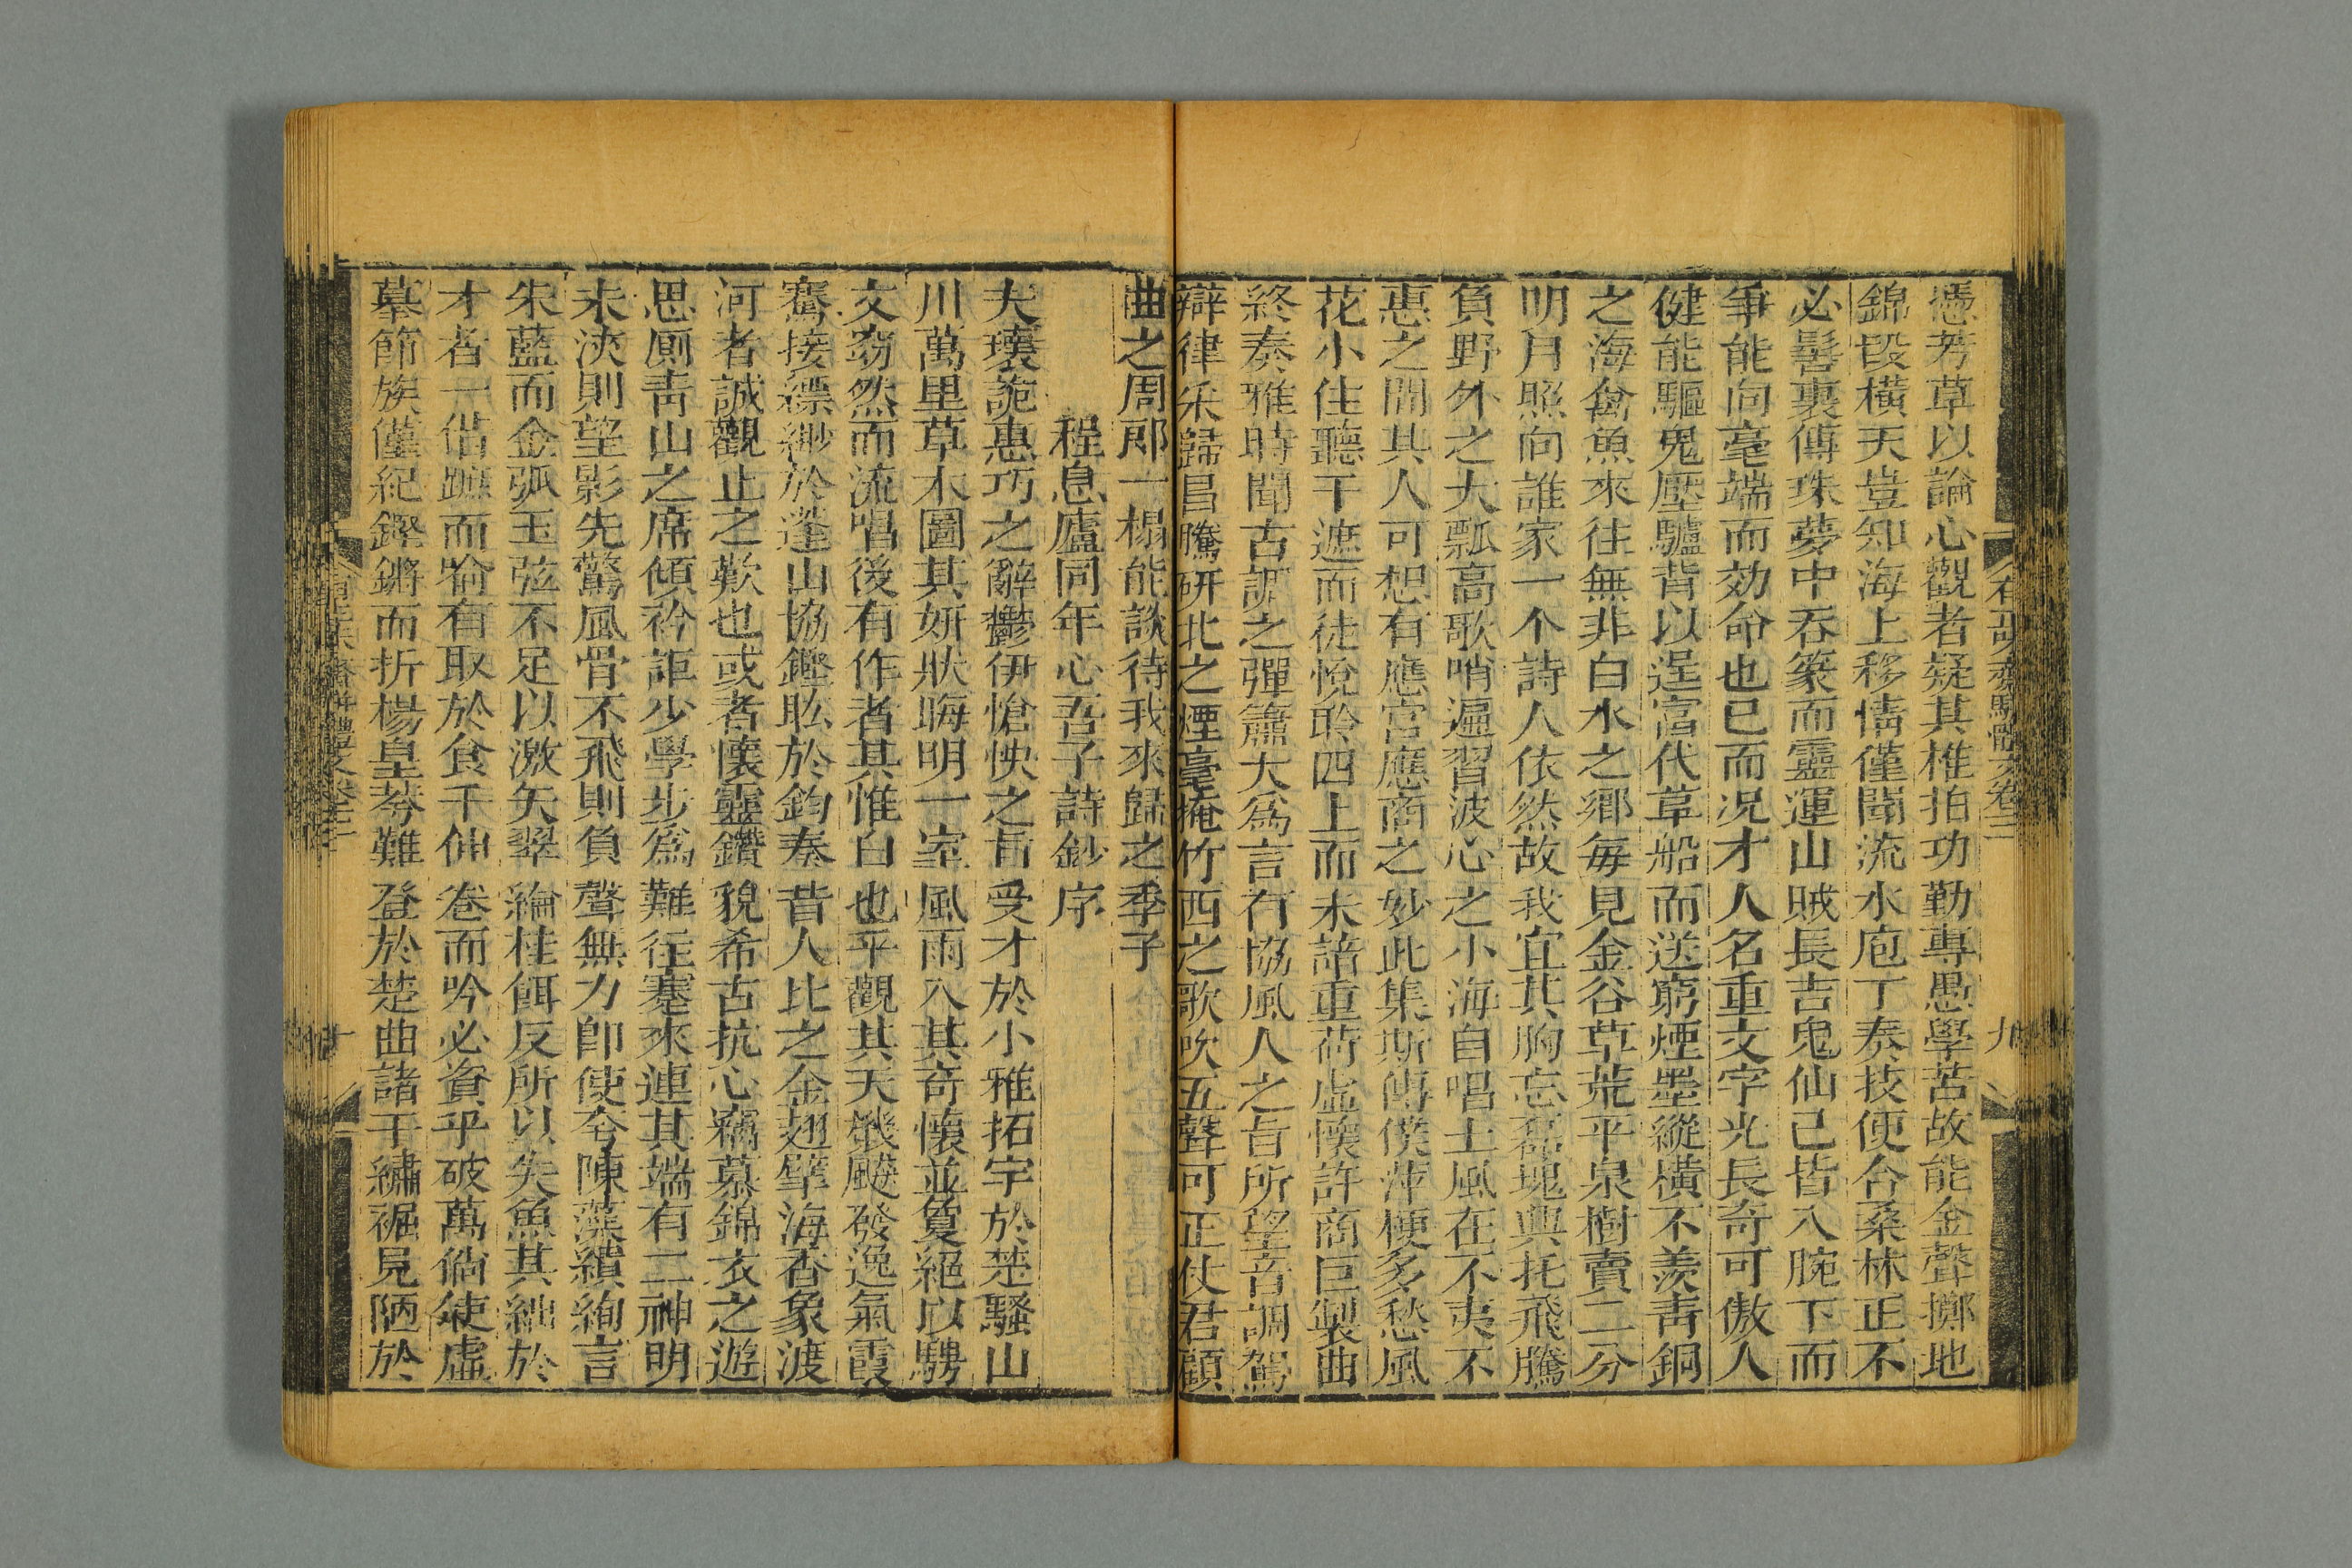 憑芳草以論心觀者疑其椎拍功勤專愚學苦故能金聲擲地
錦段橫天豈知海上移情僅聞流水庖丁奏技便合桑林正不
必髻裏傅珠夢中吞篆而靈運山賊長吉鬼仙己皆入腕下而
爭能向毫端而効命也已而况才人名重文字光長奇可傲人
健能驅鬼壓驢背以逞富代草船而送窮煙墨縱橫不羨青銅
之海禽魚來往無非白水之鄉每見金谷草荒平泉樹賣二分
明月照向誰家一个詩人依然故我宜其胸忘磊塊興托飛騰
負野外之大瓢高歌哨遍習波心之小海自唱土風在不夷不
惠之閒其人可想有應宮應商之妙此集斯傳僕萍梗多愁風
花小住聽干遮而徒悅聆四上而未諳重荷虛懷許商巨製曲
終奏雅時聞古調之彈簫大爲言有協風人之旨所望音調駕
辯律采歸昌騰研北之煙毫掩竹西之歌吹五聲可正仗君顧
曲之周郎一榻能談待我來歸之季子
程息廬同年心吾子詩鈔序
夫瓌詭惠巧之辭鬱伊愴怏之旨受才於小雅拓宇於楚騷山
川萬里草木圖其妍狀晦明一室風雨入其奇懷並夐絕以騁
文窈然而流唱後有作者其惟白也乎觀其天機飇發逸氣霞
騫接縹緲於蓬山協鏗訇於鈞奏昔人比之金翅擘海香象渡
河者誠觀止之歎也或者懷靈鑽貌希古抗心竊慕錦衣之遊
思廁靑山之席傾衿詎少學步爲難往蹇來連其端有二神明
未浹則望影先驚風骨不飛則負聲無力卽使夸陳藻繢絢言
朱藍而金弧玉弦不足以激矢翠綸桂餌反所以失魚其絀於
才者一偕蹠而喻有取於食千伸卷而吟必資乎破萬倘使虛
摹節族僅紀鏗鏘而折楊皇荂難登於楚曲諸于繡䘿見陋於
有正味齋駢體文卷三
九
十